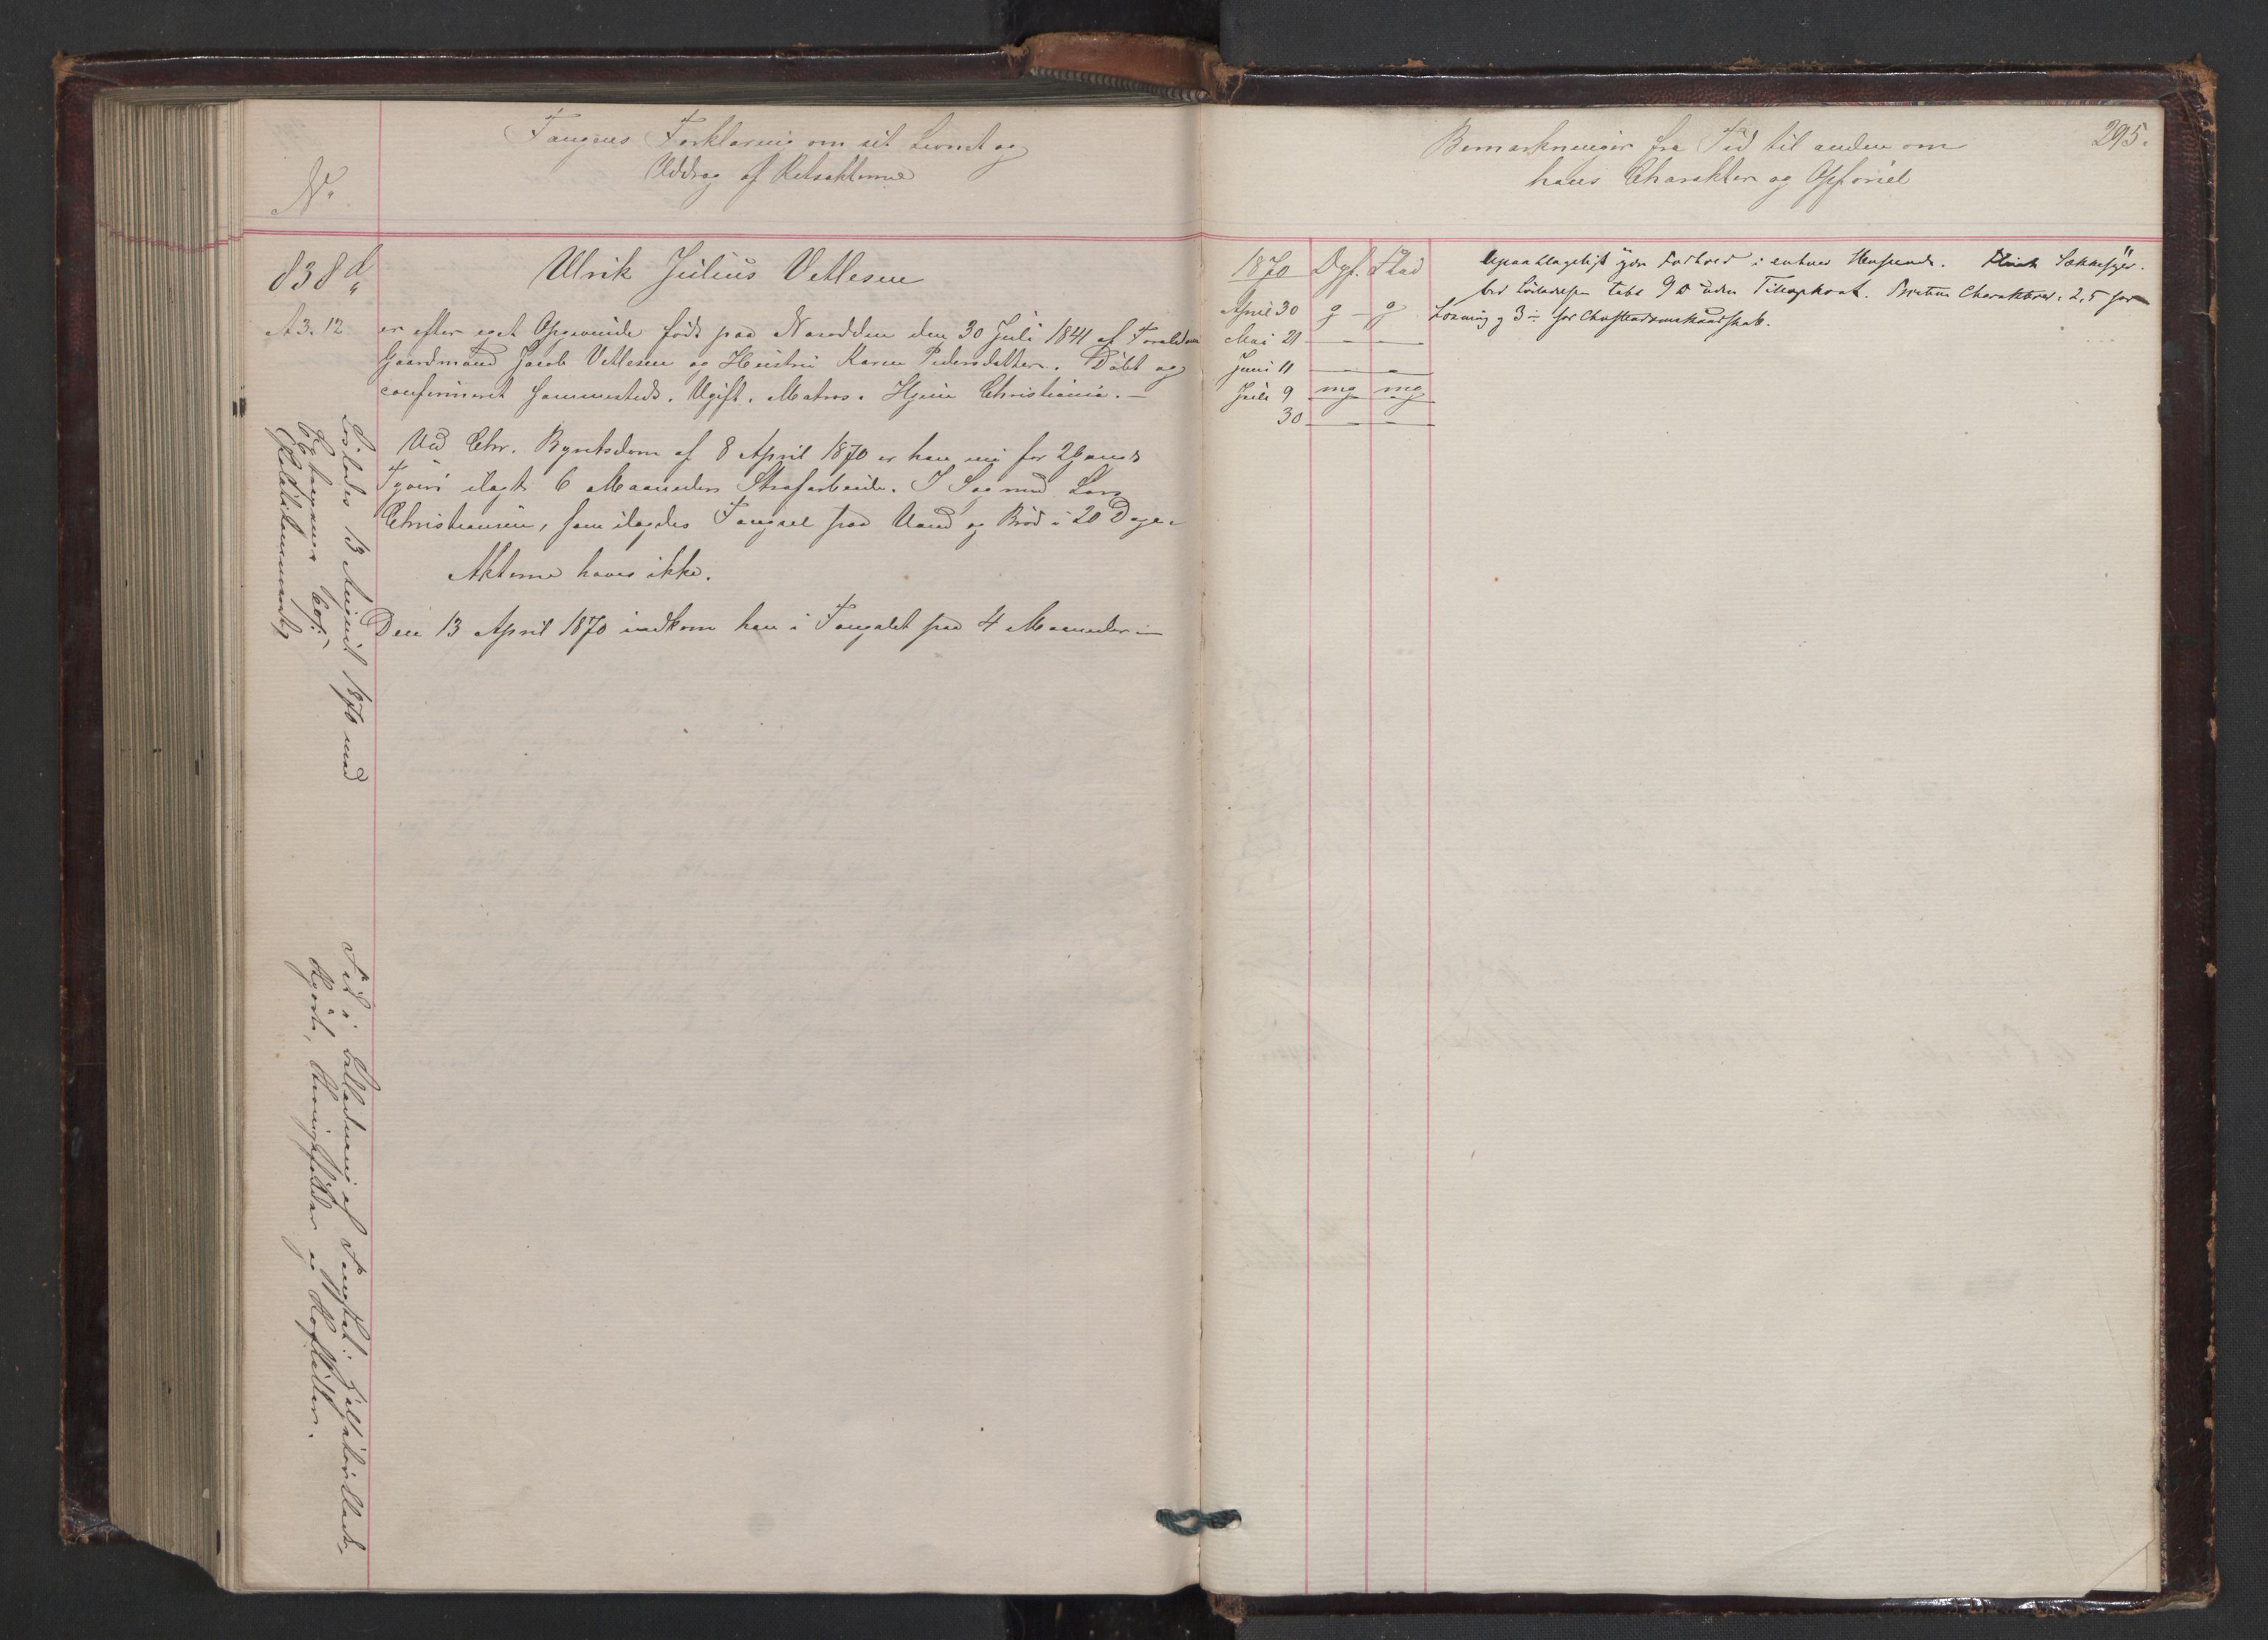 No
Fangens Forklaring om sit Levnet og
Uddrag af Retsakterne
838 d/4
A 3. 12
Ulrik Julius Vetlesen
er efter eget Opgivende född paa Nesodden den 30 Juli 1841 af Foreldre
Gaardmand Jacob Vetlesen og Hustru Karen Pedersdatter. Döbt og
confirmeret sammesteds. Ugift. Matros. Hjem Christiania. —
Ved Chr. Byretsdom af 8 April 1870 er han nu for 2 Gang
Tyveri ilagt 6 Maaneders Strafarbeide. I Sag med Lars
Christiansen, som ilagdes Fængsel paa Vand og Bröd i 20 Dage.
Akterne haves ikke.
Den 13 April 1870 indkom han i Fængslet paa 4 Maaneder
Löslades 13 August 1870 med
Fik i Beklædning af Fængslet:
Skjorte, og
Bemærkninger fra Tid til anden om
hans Charakter og Opförsel
295.
1870 Opf. Flid
April 30 g — g
Mai 21 — —
Juni 11 — —
Juli 9 mg mg
30 — —
Upaaklageligt godt Forhold i enhver Henseende.
ved Lösladelsen uden Tillægskost. Charakterer: 2,5 for
Læsning og 3 for Christendomskundskab.